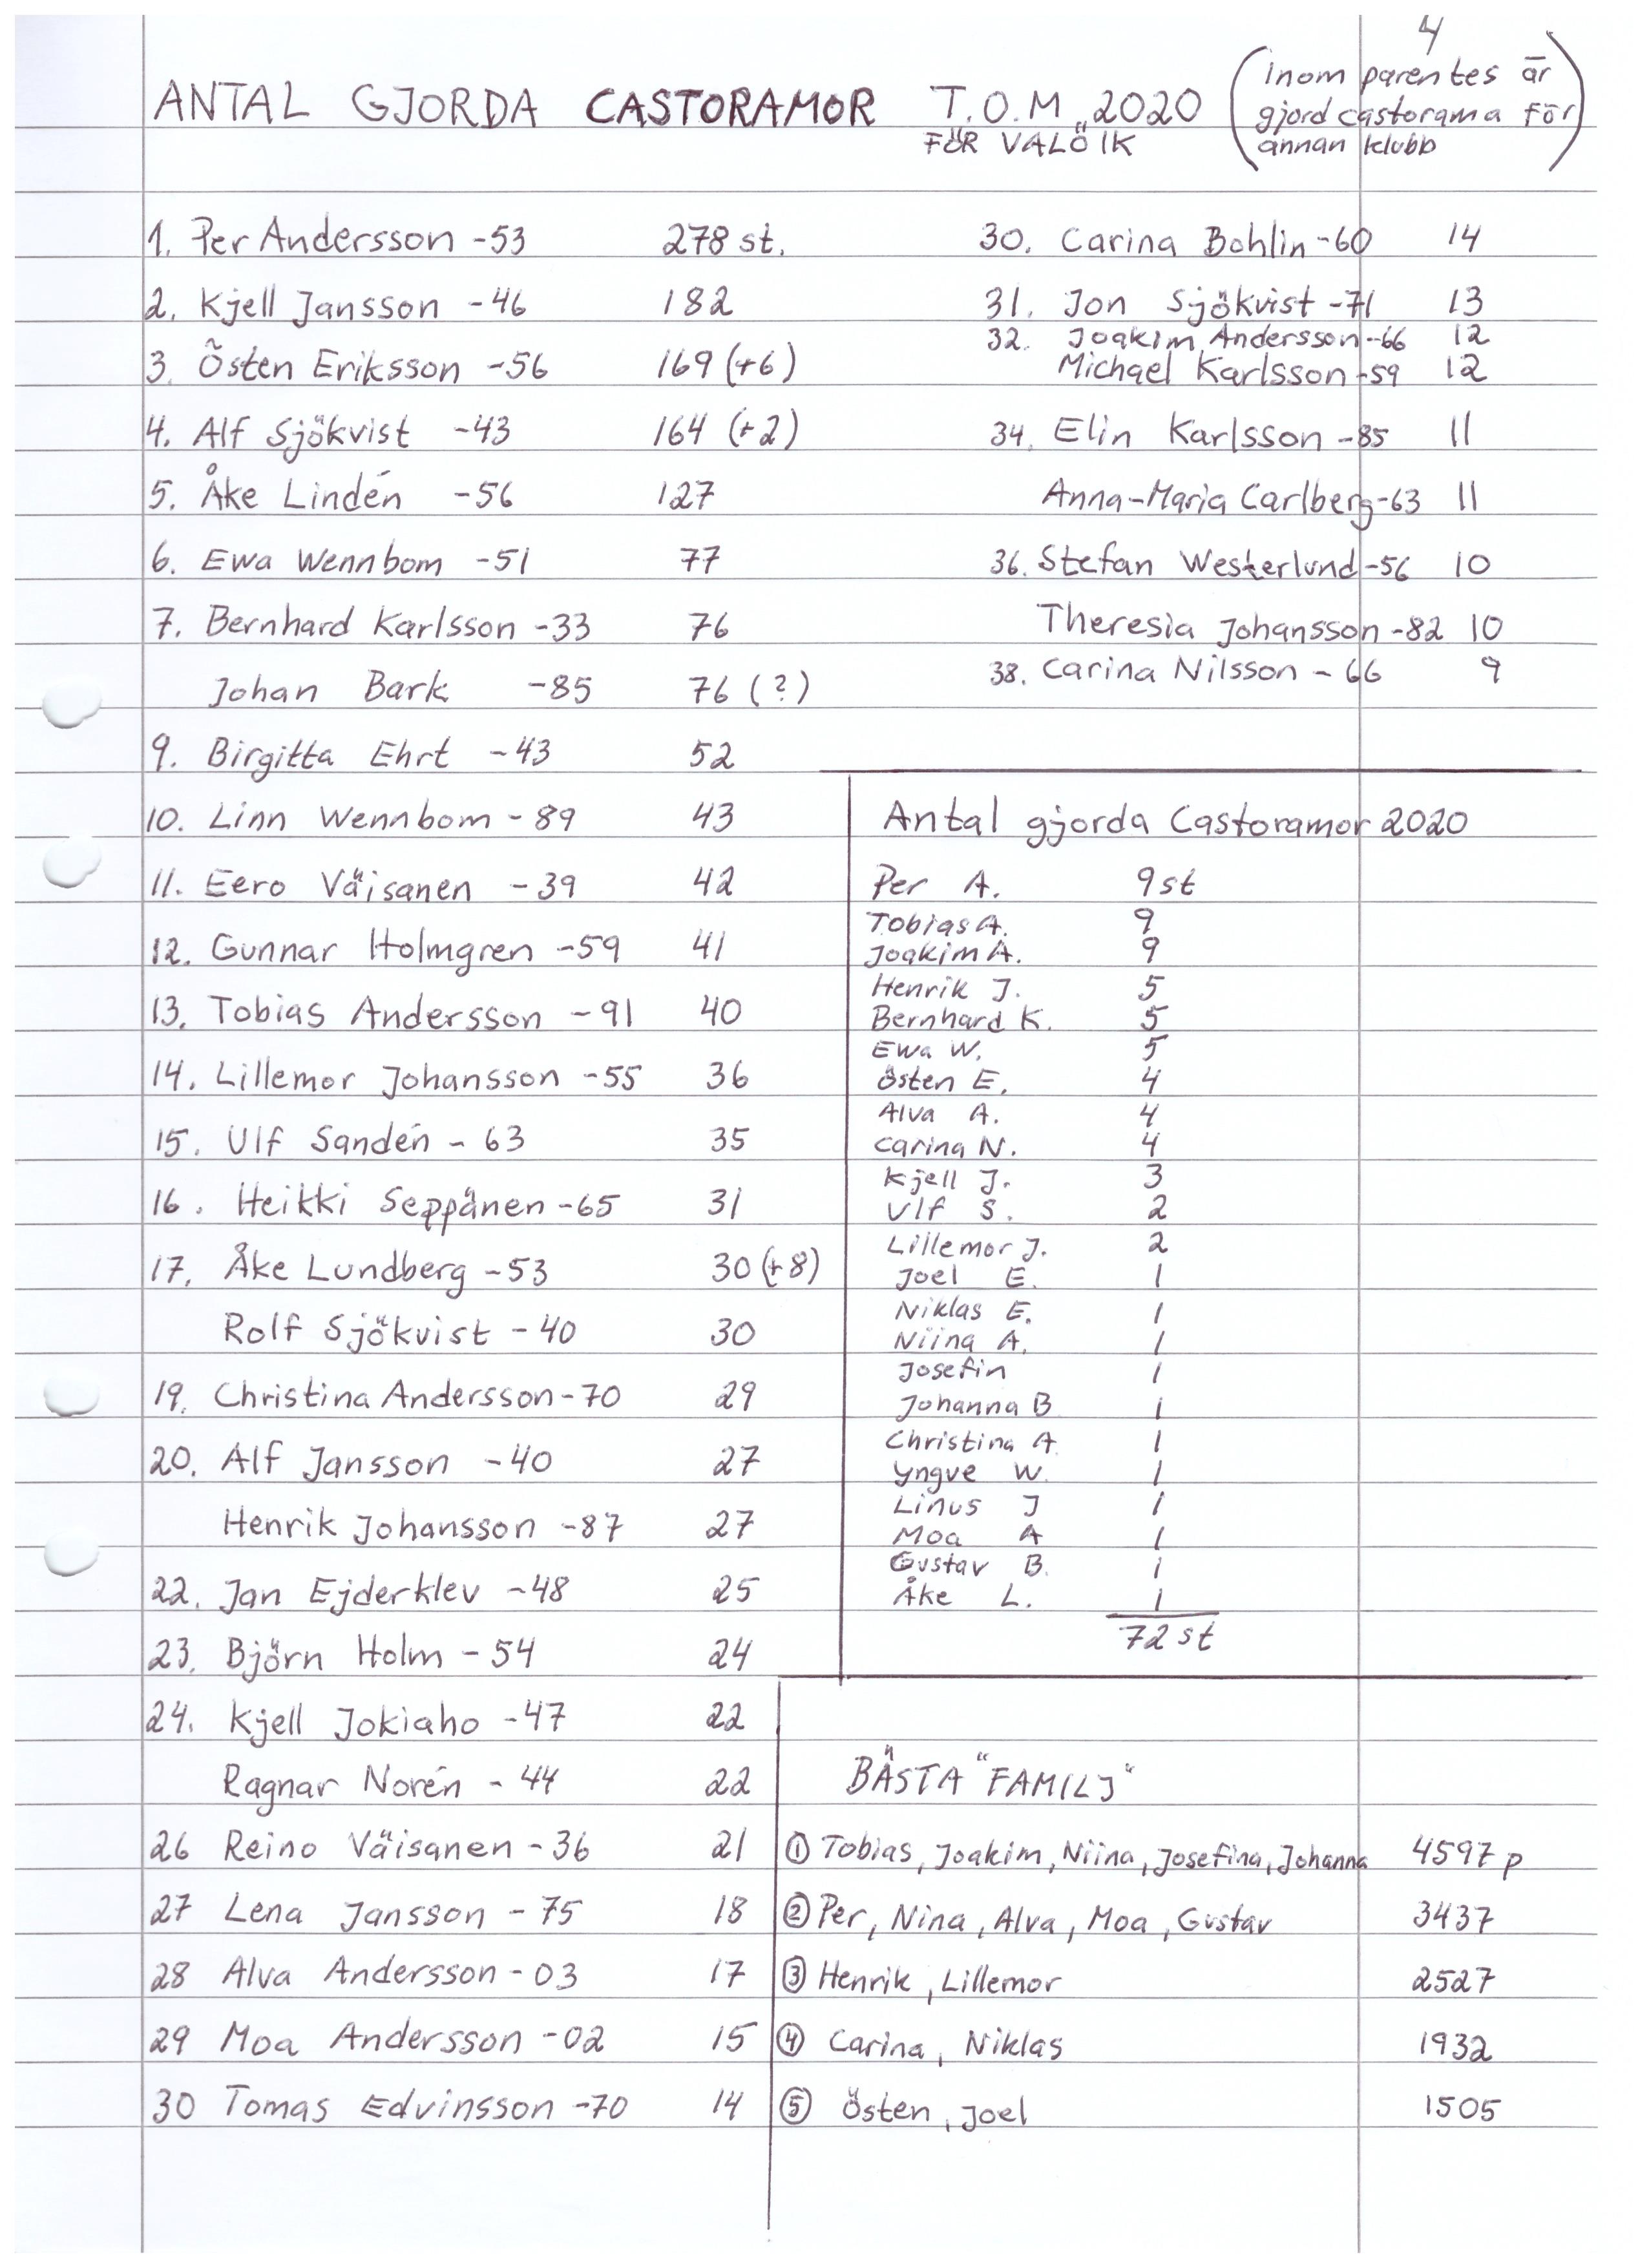 4
ANTAL GJORDA CASTORAMOR T.O.M. 2020
FÖR VALÖ IK
(inom parentes är
gjord castorama för
annan klubb)
1. Per Andersson -53 278 st.
2. Kjell Jansson -46 182
3. Östen Eriksson -56 169 (+6)
4. Alf Sjökvist -43 164 (+2)
5. Åke Lindén -56 127
6. Ewa Wennbom -51 77
7. Bernhard Karlsson -33 76
Johan Bark -85 76 (?)
9. Birgitta Ehrt -43 52
10. Linn Wennbom -89 43
11. Eero Väisanen -39 42
12. Gunnar Holmgren -59 41
13. Tobias Andersson -91 40
14. Lillemor Johansson -55 36
15. Ulf Sandén -63 35
16. Heikki Seppänen -65 31
17. Åke Lundberg -53 30 (+8)
Rolf Sjökvist -40 30
19. Christina Andersson -70 29
20. Alf Jansson -40 27
Henrik Johansson -87 27
22. Jan Ejderklev -48 25
23. Björn Holm -54 24
24. Kjell Jokiaho -47 22
Ragnar Norén -44 22
26 Reino Väisanen -36 21
27 Lena Jansson -75 18
28 Alva Andersson -03 17
29 Moa Andersson -02 15
30 Tomas Edvinsson -70 14
30. Carina Bohlin -60 14
31. Jon Sjökvist -71 13
32. Joakim Andersson -66 12
Michael Karlsson -59 12
34. Elin Karlsson -85 11
Anna-Maria Carlberg -63 11
36. Stefan Westerlund -56 10
Theresia Johansson -82 10
38. Carina Nilsson -66 9
Antal gjorda Castoramor 2020
Per A. 9 st
Tobias A. 9
Joakim A. 9
Henrik J. 5
Bernhard K. 5
Ewa W. 5
Östen E. 4
Alva A. 4
Carina N. 4
Kjell J. 3
Ulf S. 2
Lillemor J. 2
Joel E. 1
Niklas E. 1
Niina A. 1
Josefin 1
Johanna B 1
Christina A 1
Yngve W. 1
Linus J 1
Moa A 1
Gustav B. 1
Åke L. 1
72 st
BÄSTA "FAMILJ"
① Tobias, Joakim, Niina, Josefina, Johanna 4597 p
② Per, Nina, Alva, Moa, Gustav 3437
③ Henrik, Lillemor 2527
④ Carina, Niklas 1932
⑤ Östen, Joel 1505